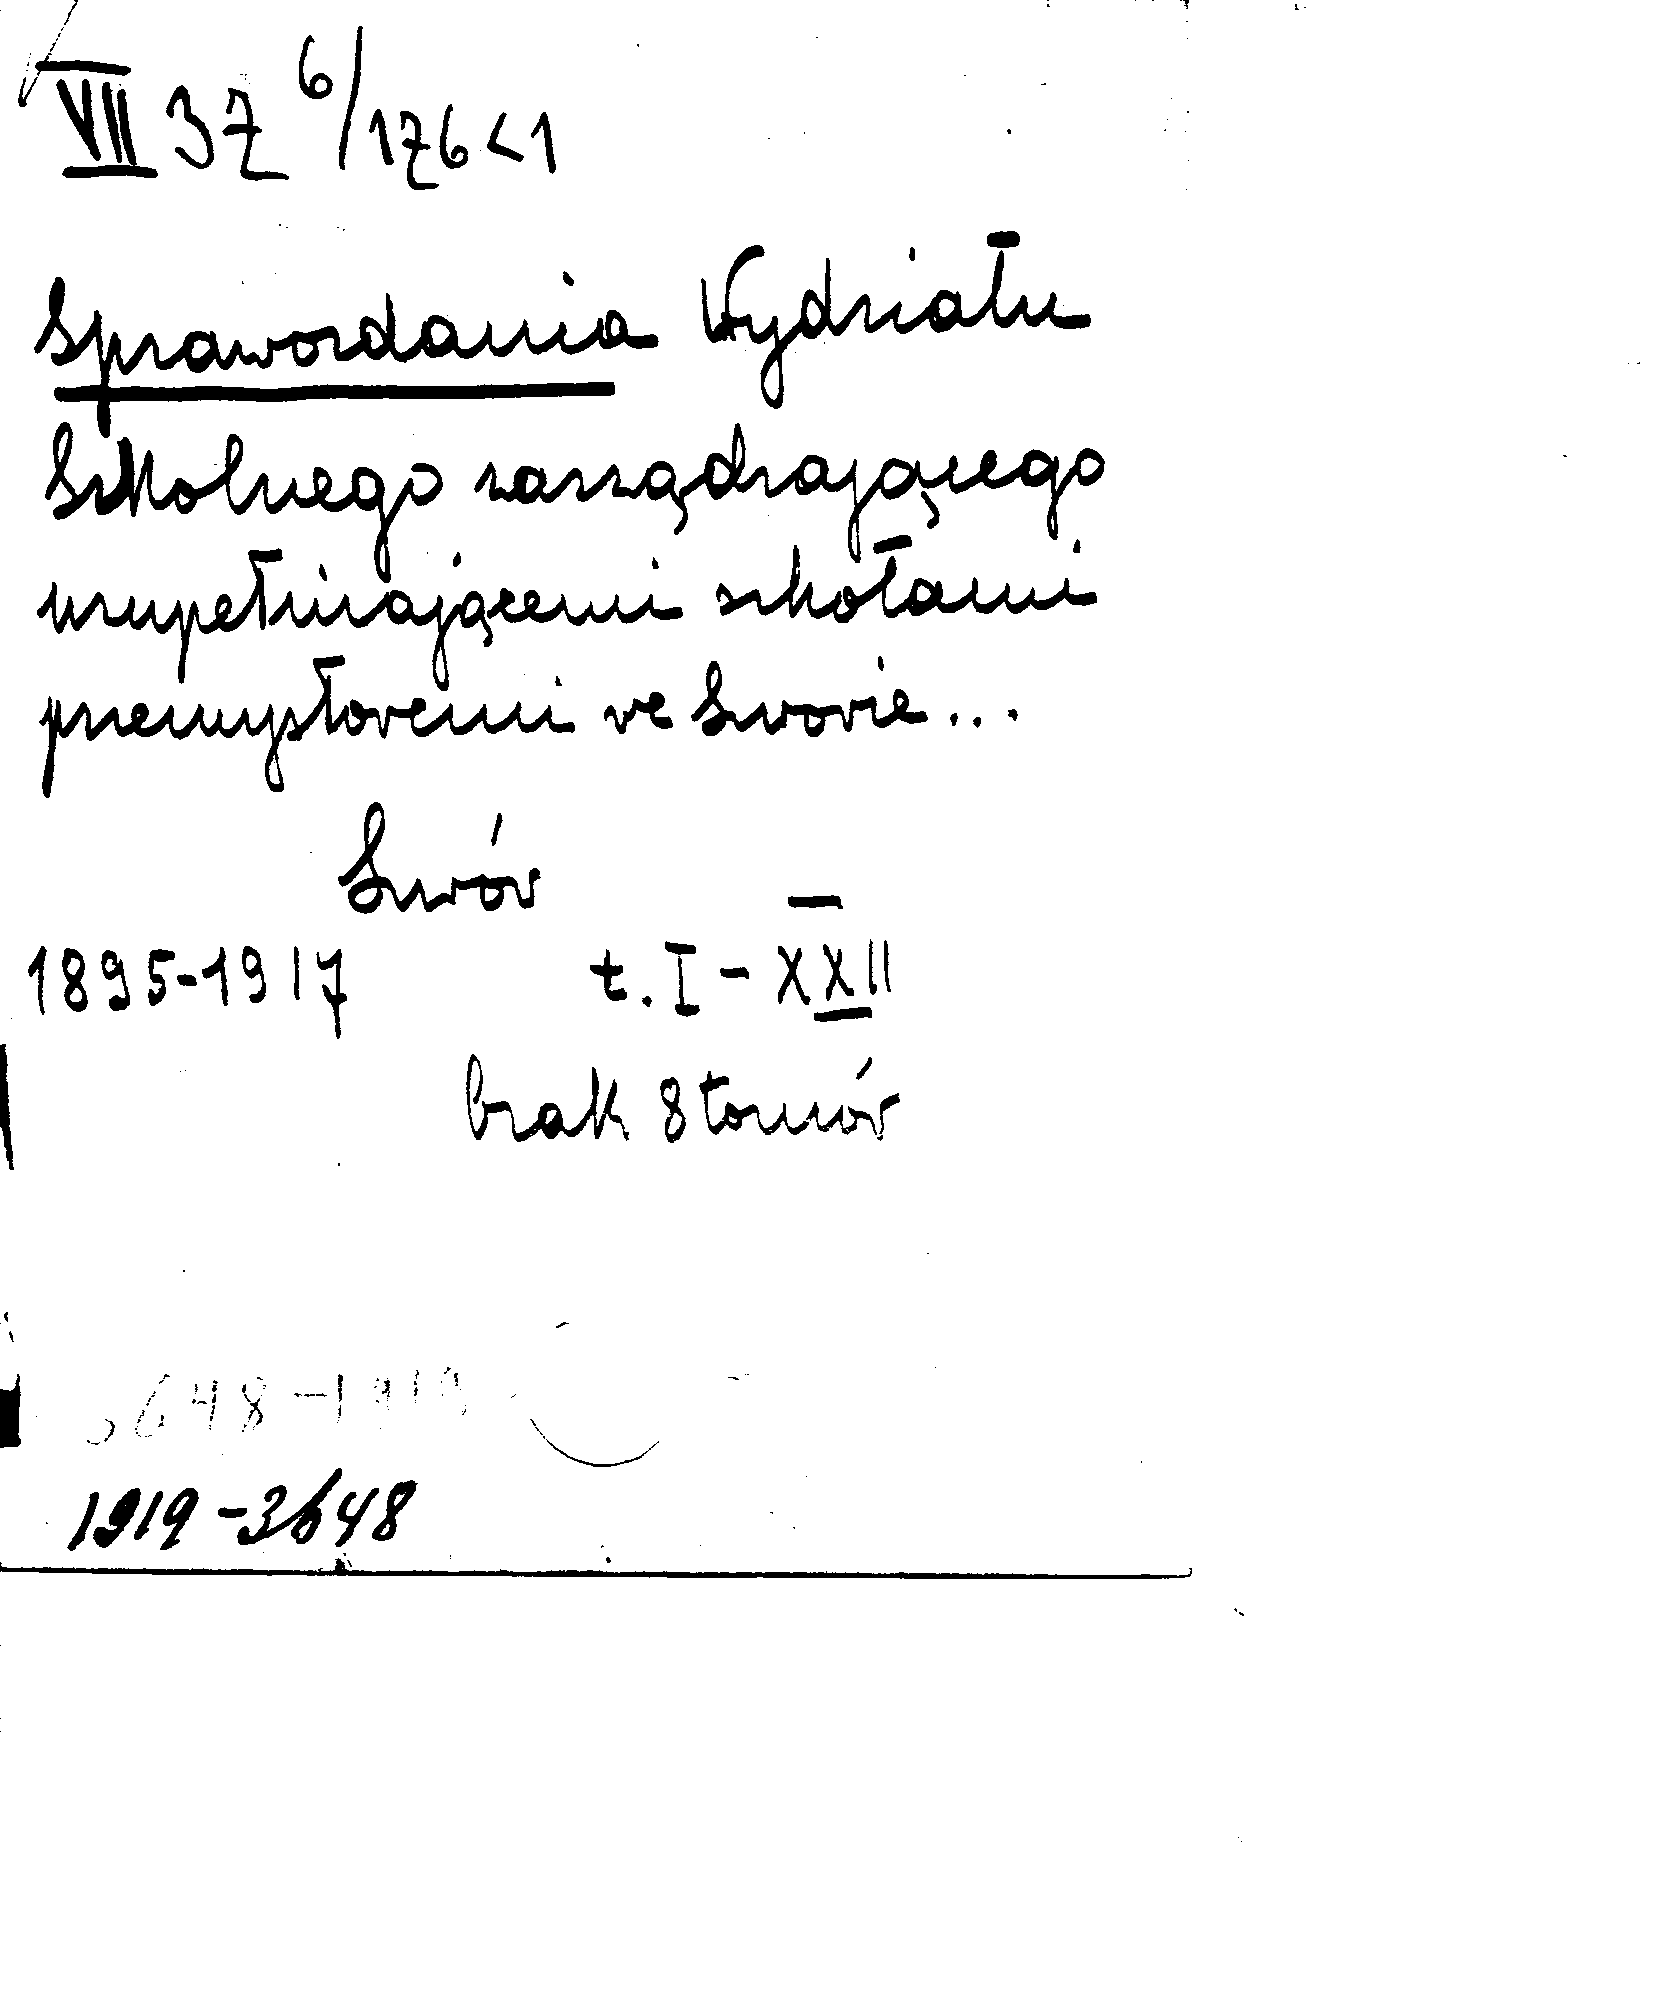 VII 37 6/176<1
Sprawozdania Wydziału
Szkolnego zarządzającego
uzupełniającemi szkołami
przemysłowemi we Lwowie...
Lwów
1895-1917 t. I - XXII
brak 8 tomów
3648-1919
1919-3648